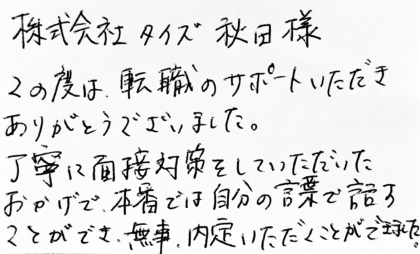 株式会社タイズ 秋田様
この度は、転職のサポートいただき
ありがとうございました。
丁寧に面接対策をしていただいた
おかげで、本番では自分の言葉で話す
ことができ、無事、内定いただくことができました。